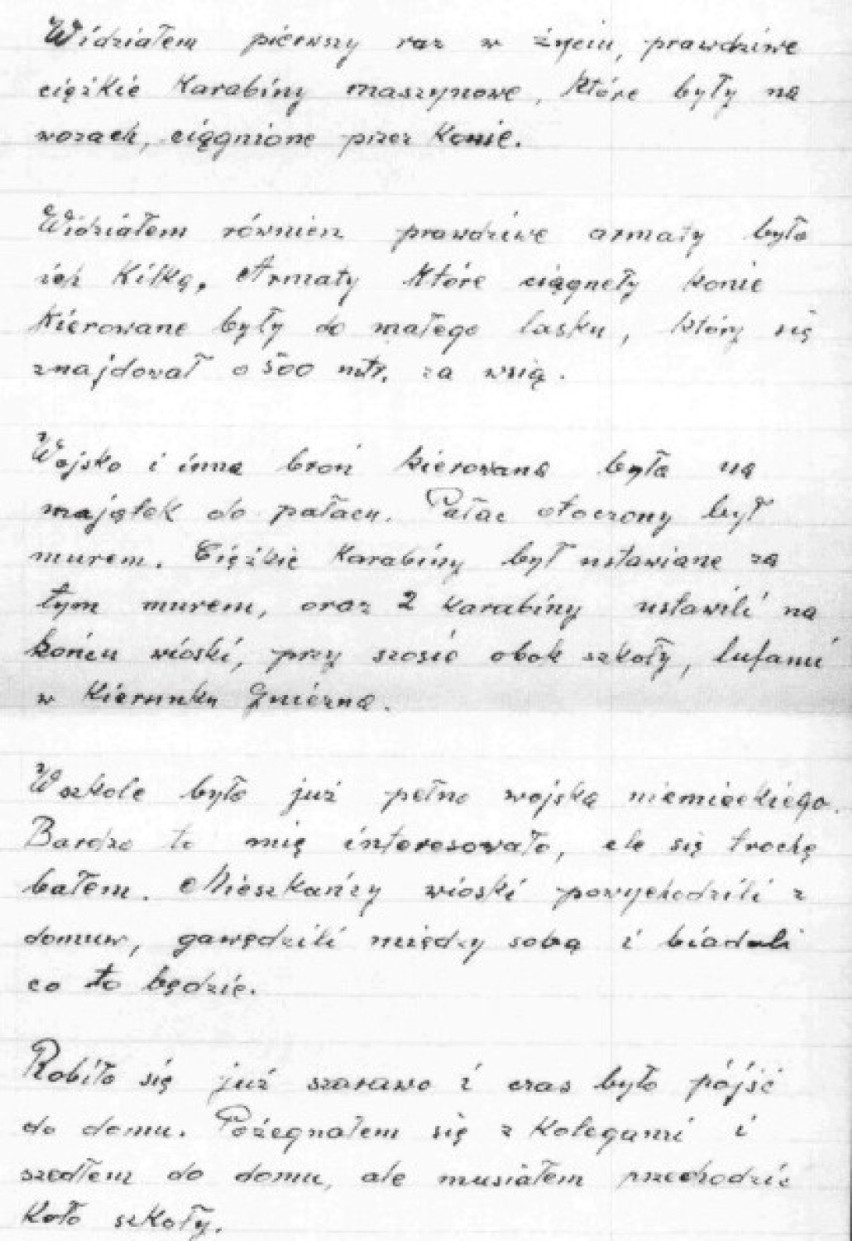 Widziałem pierwszy raz w życiu, prawdziwe
ciężkie karabiny maszynowe, które były na
wozach, ciągnione przez konie.
Widziałem równierz prawdziwe armaty było
ich kilką, Armaty które ciągneły konie
kierowane były do małego lasku, który się
znajdował o 500 mtr. za wsią.
Wojsko i inna broń kierowana była na
majątek do pałacu. Pałac otoczony był
murem. Ciężkie karabiny był ustawiane za
tym murem, oraz 2 karabiny ustawili na
końcu wioski, przy szosie obok szkoły, lufami
w kierunku Gniezna.
W szkole było już pełno wojska niemieckiego.
Bardzo to mię interesowało, ale się trochę
bałem. Mieszkańcy wioski powychodzili z
domuw, gawędzili między sobą i biadali
co to będzie.
Robiło się już szarawo i czas było pójść
do domu. Pożegnałem się z kolegami i
szedłem do domu, ale musiałem przechodzić
koło szkoły.